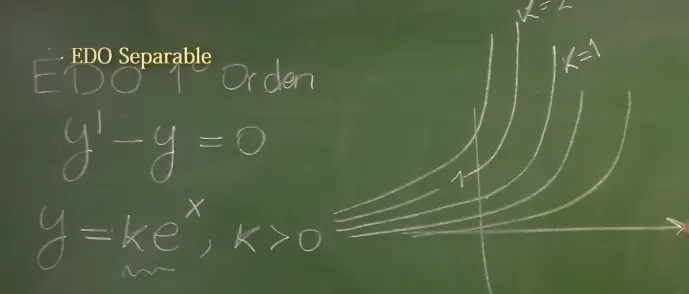 · EDO Separable
EDO 1° Orden
y' - y = 0
y = ke^x, K > 0
K=2
K=1
1